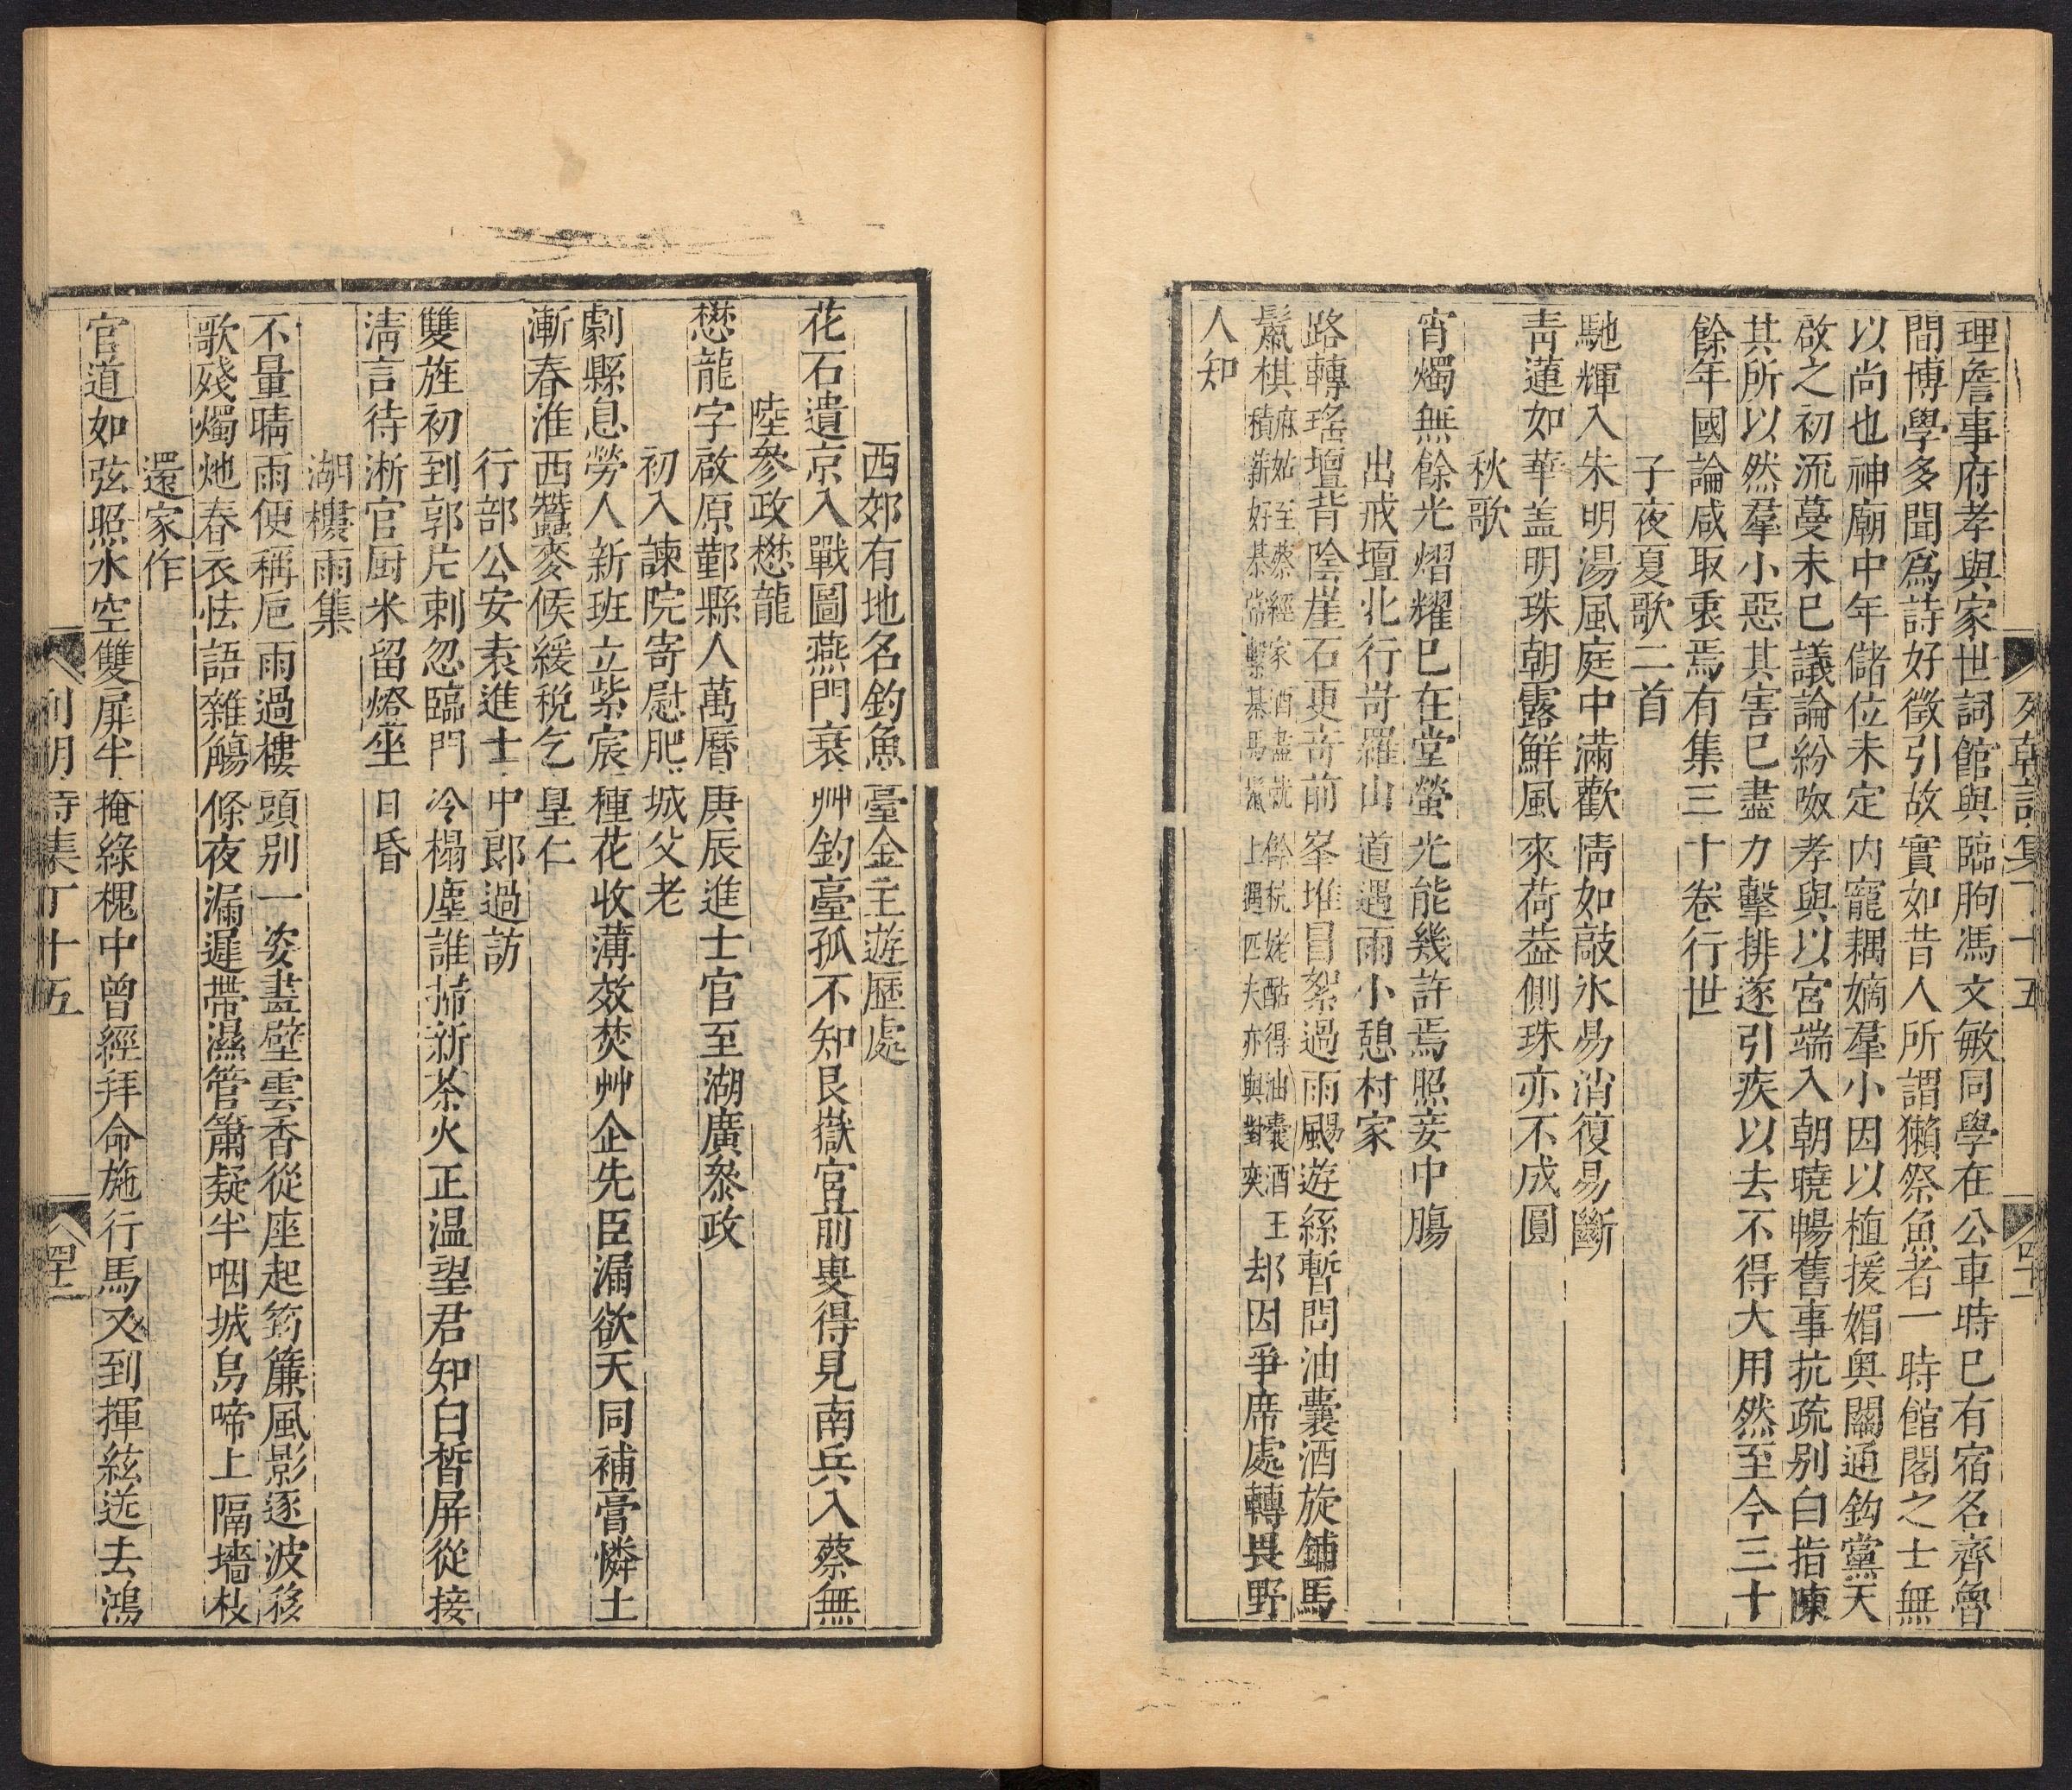 理詹事府孝與家世詞館與臨朐馮文敏同學在公車時已有宿名齊魯
間博學多聞爲詩好徵引故實如昔人所謂獺祭魚者一時館閣之士無
以尚也神廟中年儲位未定內寵耦嫡羣小因以植援媚奥關通鈎黨天
啟之初流蔓未已議論紛呶孝與以宮端入朝曉暢舊事抗疏别白指陳
其所以然羣小惡其害已盡力擊排遂引疾以去不得大用然至今三十
餘年國論咸取衷焉有集三十卷行世
子夜夏歌二首
馳輝入朱明湯風庭中滿歡情如敲氷易消復易斷
靑蓮如華盖明珠朝露鮮風來荷葢側珠亦不成圓
秋歌
宵燭無餘光熠耀已在堂螢光能幾許焉照妾中腸
出戒壇北行岢羅山道遇雨小憩村家
路轉瑤壇背陰崖石更奇前峯堆冒絮過雨颺遊絲暫問油囊酒旋鋪馬
鬣棋麻姑至蔡經家酒盡就餘杭姥酤得油囊酒王積薪好棊常繫棊馬鬣上遇匹夫亦與對奕却因爭席處轉畏野
人知
列朝詩集丁十五
四十一
西郊有地名釣魚臺金主遊歷處
花石遺京入戰圖燕門衰艸釣臺孤不知艮嶽官前叟得見南兵入蔡無
陸參政懋龍
懋龍字啟原鄞縣人萬曆庚辰進士官至湖廣叅政
初入諫院寄慰肥城父老
劇縣息勞人新班立紫宸種花收薄效焚艸企先臣漏欲天同補膏憐土
漸春淮西蠶麥候緩稅乞皇仁
行部公安袁進士中郎過訪
雙旌初到郭片刺忽臨門冷榻塵誰掃新茶火正温望君知白晳屏從接
淸言待淅官厨米留燈坐日昏
湖樓雨集
不量晴雨便稱巵雨過樓頭別一姿畵壁雲香從座起筠簾風影逐波移
歌殘燭灺春衣怯語雜觴條夜漏遲帶濕管簫疑半咽城烏啼上隔墻枝
還家作
官道如弦照水空雙屏半掩綠槐中曾經拜命施行馬又到揮絃送去鴻
列朝詩集丁十五
四十二